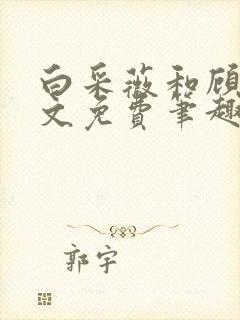 白采薇和顾
文免费笔趣
郭宇